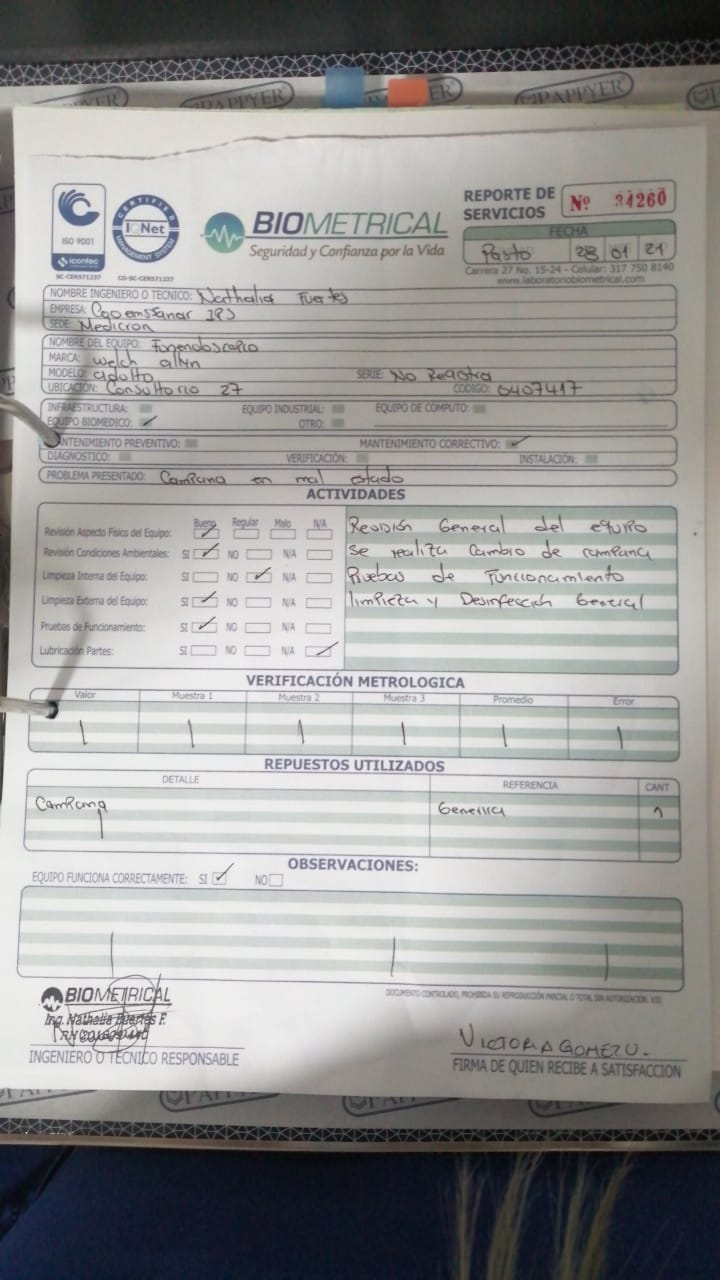 PAPPYER
ISO 9001
icontec
SC-CER571237
CERTIFIED
IQNet
MANAGEMENT SYSTEM
CO-SC-CER571237
BIOMETRICAL
Seguridad y Confianza por la Vida
REPORTE DE SERVICIOS
Nº 34260
FECHA
Pasto 28 01 21
Carrera 27 No. 15-24 - Celular: 317 750 8140
www.laboratoriobiometrical.com
NOMBRE INGENIERO O TECNICO: Nathalia Fuertes
EMPRESA: Cooemssanar IPS
SEDE: Medicron
NOMBRE DEL EQUIPO: Fonendoscopio
MARCA: Welch allyn
MODELO: adulto SERIE: No Registra
UBICACIÓN: Consultorio 27 CÓDIGO: 0407417
INFRAESTRUCTURA: EQUIPO INDUSTRIAL: EQUIPO DE COMPUTO:
EQUIPO BIOMEDICO: ✓ OTRO:
MANTENIMIENTO PREVENTIVO: MANTENIMIENTO CORRECTIVO: ✓
DIAGNOSTICO: VERIFICACIÓN: INSTALACIÓN:
PROBLEMA PRESENTADO: Campana en mal estado
ACTIVIDADES
Bueno Regular Malo N/A
Revisión Aspecto Físico del Equipo: ✓
Revisión Condiciones Ambientales: SI ✓ NO N/A
Limpieza Interna del Equipo: SI NO ✓ N/A
Limpieza Externa del Equipo: SI ✓ NO N/A
Pruebas de Funcionamiento: SI ✓ NO N/A
Lubricación Partes: SI NO N/A ✓
Revisión General del equipo
se realiza cambio de campana
Pruebas de Funcionamiento
limpieza y Desinfección General
VERIFICACIÓN METROLOGICA
Valor Muestra 1 Muestra 2 Muestra 3 Promedio Error
REPUESTOS UTILIZADOS
DETALLE REFERENCIA CANT
Campana Generica 1
OBSERVACIONES:
EQUIPO FUNCIONA CORRECTAMENTE: SI ✓ NO
BIOMETRICAL
Ing. Nathalia Fuertes F.
INGENIERO O TECNICO RESPONSABLE
DOCUMENTO CONTROLADO, PROHIBIDA SU REPRODUCCIÓN PARCIAL O TOTAL SIN AUTORIZACIÓN.
VICTORIA GOMEZ U.
FIRMA DE QUIEN RECIBE A SATISFACCION